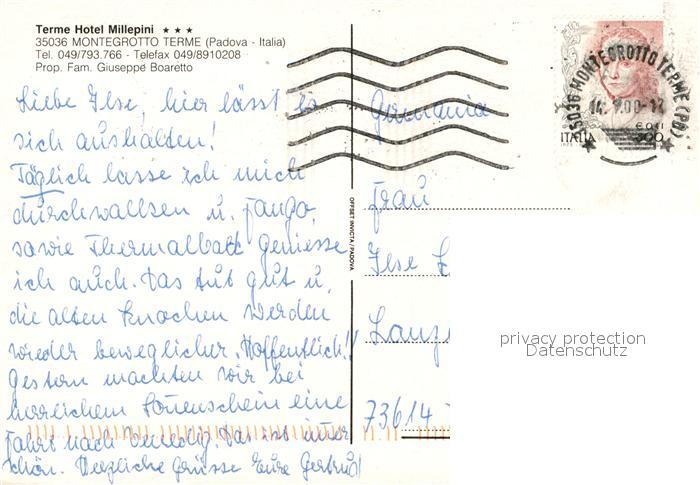 Terme Hotel Millepini ★ ★ ★
35036 MONTEGROTTO TERME (Padova - Italia)
Tel. 049/793.766 - Telefax 049/8910208
Prop. Fam. Giuseppe Boaretto
Liebe Ilse, hier lässt es
sich aushalten!
Täglich lasse ich mich
durchwalksen u. Fango,
sowie Thermalbad geniesse
ich auch. Das tut gut u.
die alten Knochen werden
wieder beweglicher. Hoffentlich!!
Gestern machten wir bei
herrlichem Sonnenschein eine
Fahrt nach Venedig. Das ist immer
schön. Herzliche Grüsse Eure Gertrud
OFFSET INVICTA / PADOVA
35036 MONTEGROTTO TERME (PD)
ITALIA
Germania
Frau
Ilse
73614
privacy protection
Datenschutz